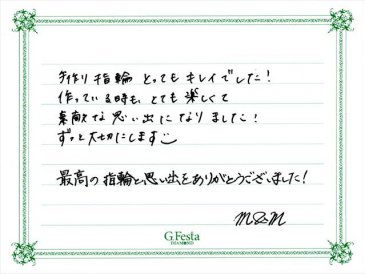 手作り指輪 とっても キレイでした！
作っている時も、とても楽しくて
素敵な思い出になりました！
ずっと大切にします
最高の指輪と思い出をありがとうございました！
M&M
G.Festa
DIAMOND